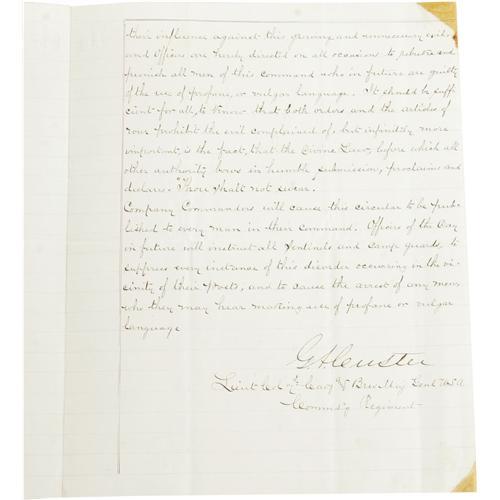 their influence against this growing and unnecessary evil
and Officers are hereby directed on all occasions to rebuke and
punish all men of this command who in future are guilty
of the use of profane, or vulgar language. It should be suffi
cient for all, to know that both orders, and the articles of
war prohibit the evil complained of, but infinitely more
important, is the fact, that the Divine Law, before which all
other authority bows in humble submission, proclaims and
declares. "Thou shalt not swear.
Company Commanders will cause this circular to be pub
lished to every man in their command. Officers of the Day
in future will instruct all Sentinels and camp guards, to
suppress every instance of this disorder occurring in the vi
cinity of their Posts, and to cause the arrest of any man
who they may hear making use of profane or vulgar
language
G A Custer
Lieut Col 7th Cavy Brev Maj Genl U.S.A
Commd'g Regiment